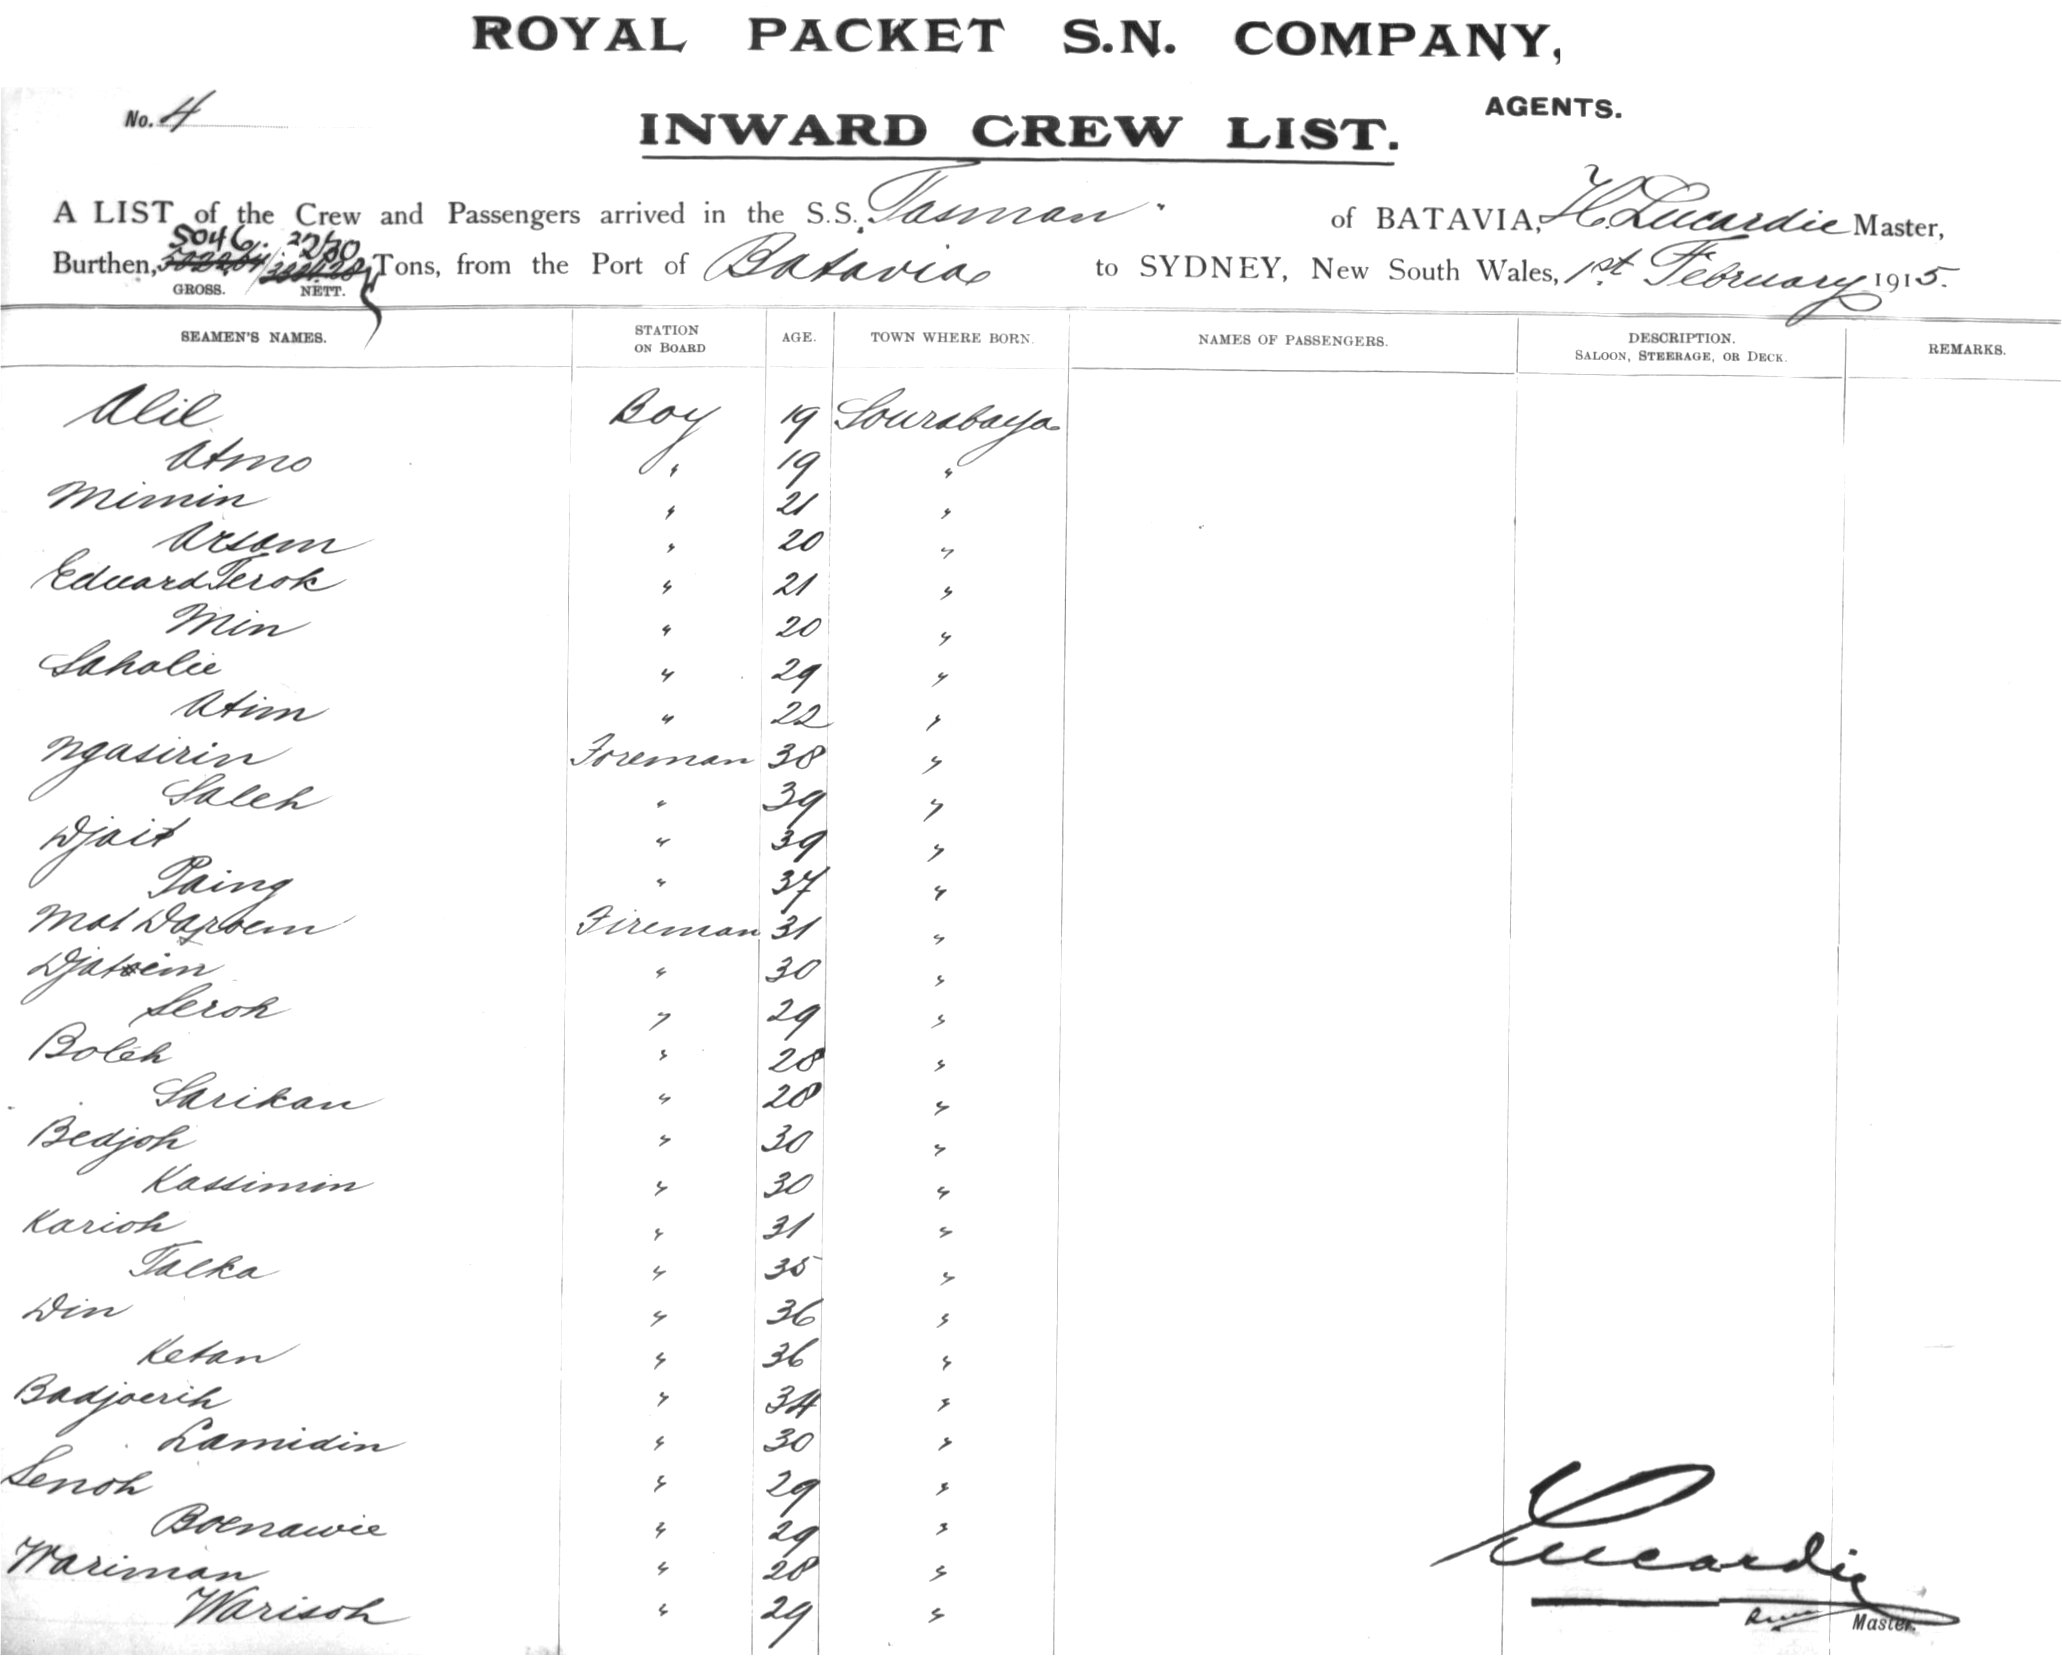 ROYAL PACKET S.N. COMPANY,
AGENTS.
No. 4
INWARD CREW LIST.
A LIST of the Crew and Passengers arrived in the S.S. Tasman of BATAVIA, H. Lucardie Master,
5046. 2230
Burthen, Tons, from the Port of Batavia to SYDNEY, New South Wales, 1st February 1915.
GROSS. NETT.
SEAMEN'S NAMES. STATION ON BOARD AGE. TOWN WHERE BORN. NAMES OF PASSENGERS. DESCRIPTION. SALOON, STEERAGE, OR DECK. REMARKS.
Alil Boy 19 Sourabaya
Atmo " 19 "
Mimin " 21 "
Arsam " 20 "
Eduard Terok " 21 "
Min " 20 "
Saholie " 29 "
Atim " 22 "
Ngasirin Foreman 38 "
Saleh " 39 "
Djait " 39 "
Paing " 37 "
Mat Fireman 31 "
Djatoim " 30 "
Seroh " 29 "
Boleh " 28 "
Sarikan " 28 "
Bedjoh " 30 "
Kassimin " 30 "
Karioh " 31 "
Talka " 35 "
Din " 36 "
Ketan " 36 "
Badjoerih " 34 "
Lamidin " 30 "
Senoh " 29 "
Boenawie " 29 "
Wariman " 28 "
Warisoh " 29 "
Lucardie
Master.